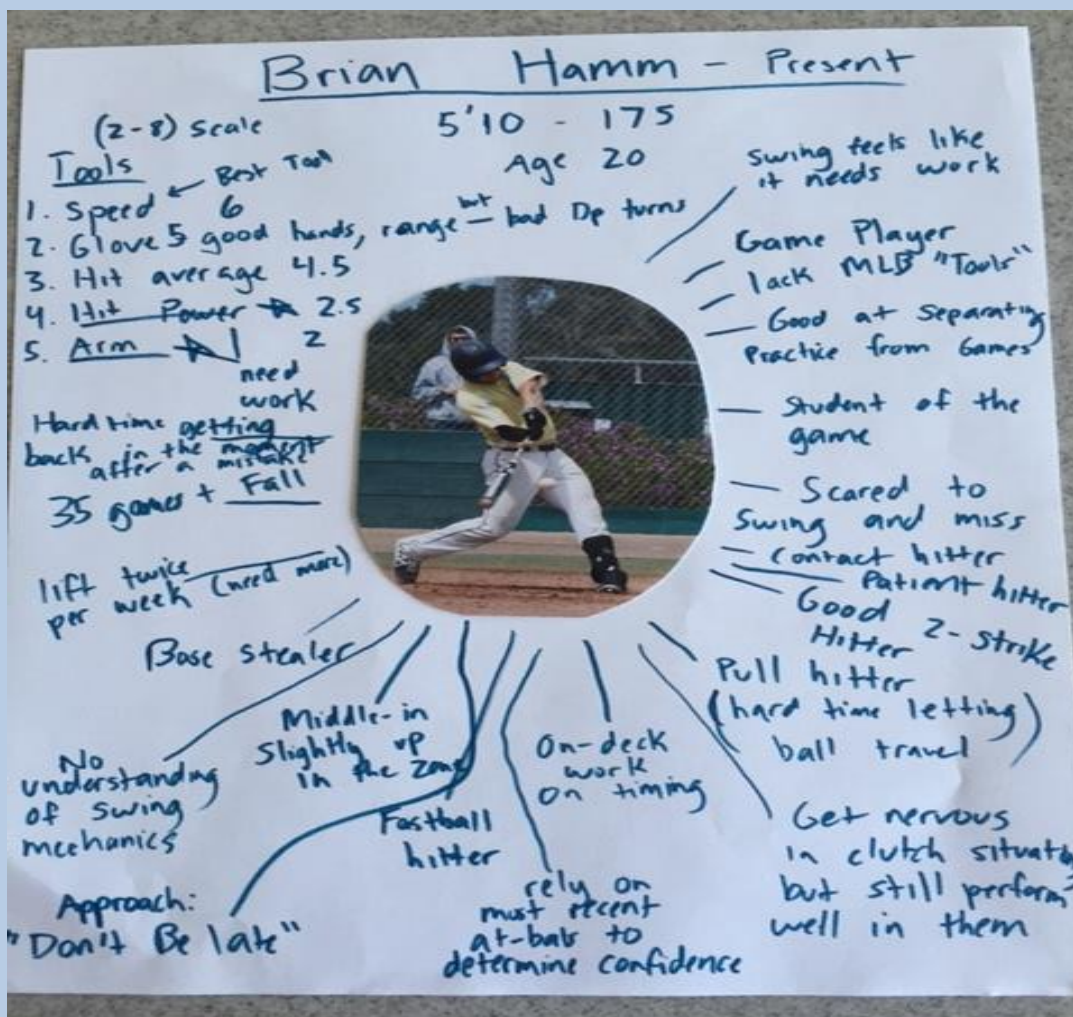 Brian Hamm - Present
5'10 - 175
Age 20
(2-8) Scale
Tools
Best Tool
1. Speed 6
2. Glove 5 good hands, range but bad Dp turns
3. Hit average 4.5
4. Hit Power 2.5
5. Arm 2
need
work
Hard time getting
back in the moment
after a mistake
35 games + Fall
lift twice
per week (need more)
Base stealer
No
understanding
of swing
mechanics
Approach:
"Don't Be late"
Middle-in
slightly up
in the zone
Fastball
hitter
rely on
most recent
at-bats to
determine confidence
On-deck
work
on timing
swing feels like
it needs work
Game Player
lack MLB "Tools"
Good at separating
practice from Games
Student of the
game
Scared to
swing and miss
contact hitter
Patient hitter
Good 2-strike
Hitter
Pull hitter
(hard time letting
ball travel)
Get nervous
in clutch
but still perform
well in them